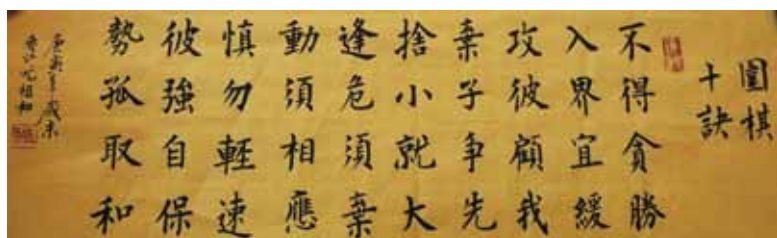 圍棋
十訣
不得貪勝
入界宜緩
攻彼顧我
棄子争先
捨小就大
逢危須棄
動須相應
慎勿輕速
彼強自保
勢孤取和
庚寅年歲末